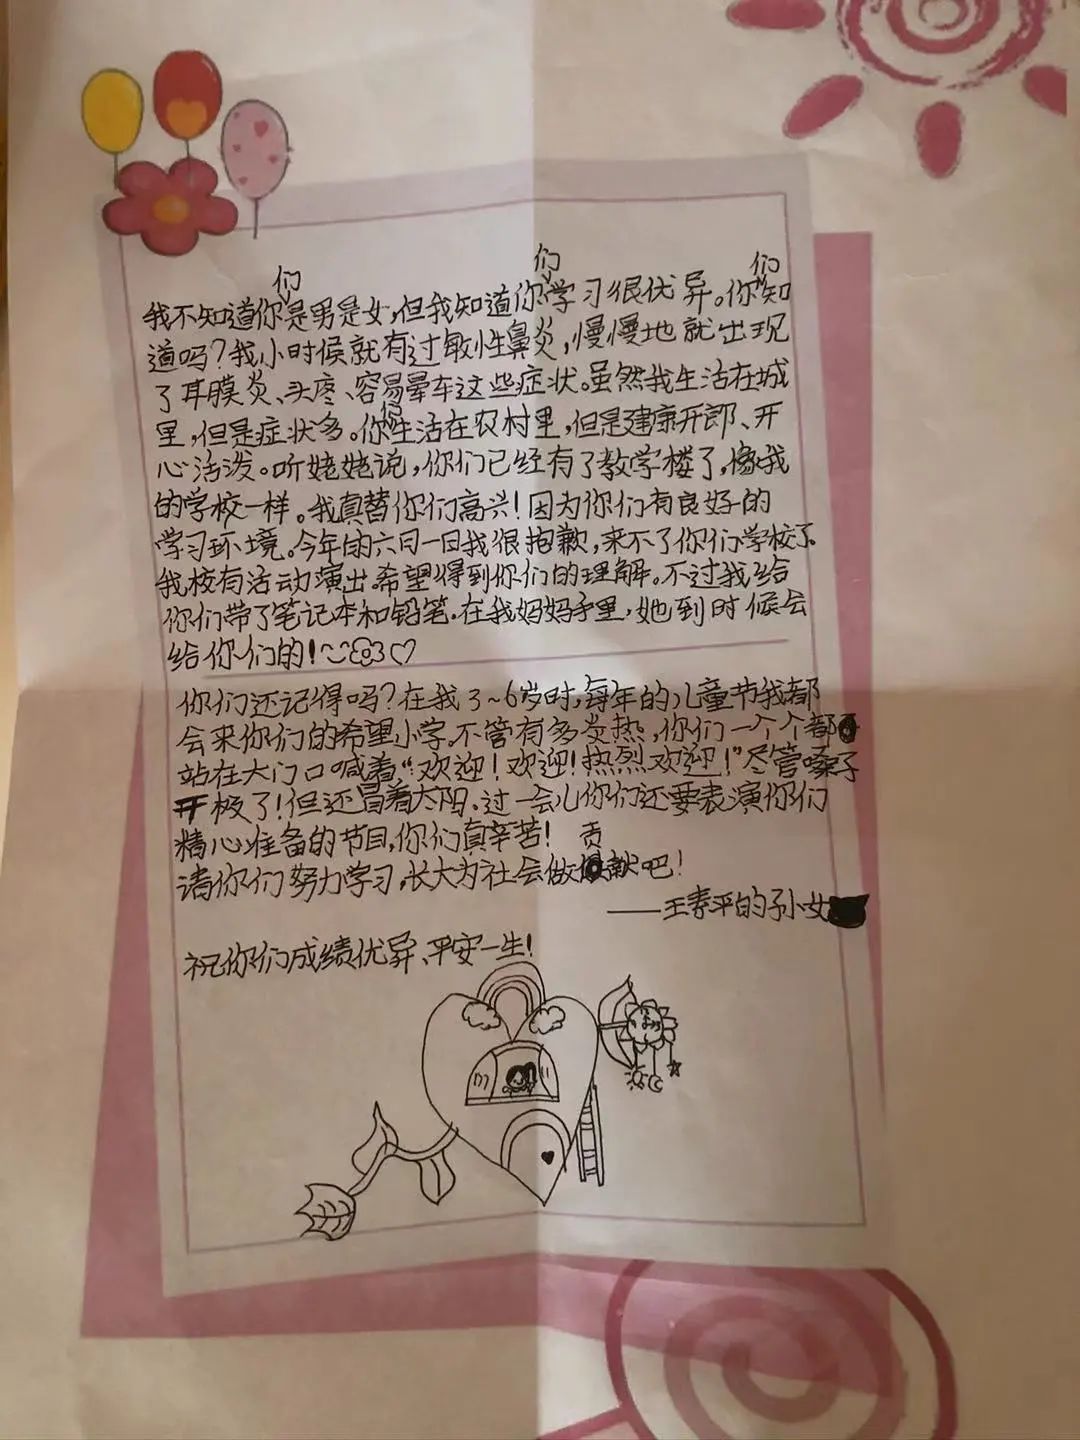 我不知道你们是男是女,但我知道你们学习很优异。你们知
道吗?我小时候就有过敏性鼻炎,慢慢地就出现
了耳膜炎、头疼、容易晕车这些症状。虽然我生活在城
里,但是症状多。你们生活在农村里,但是建康开郎、开
心活泼。听姥姥说,你们已经有了教学楼了,像我
的学校一样。我真替你们高兴!因为你们有良好的
学习环境。今年的六月一日我很抱歉,来不了你们学校了。
我校有活动演出。希望得到你们的理解。不过我给
你们带了笔记本和铅笔.在我妈妈手里,她到时候会
给你们的!
你们还记得吗?在我3~6岁时,每年的儿童节我都
会来你们的希望小学.不管有多炎热,你们一个个都
站在大门口喊着,“欢迎!欢迎!热烈欢迎!”尽管嗓子
极了!但还冒着太阳、过一会儿你们还要表演你们
精心准备的节目,你们真辛苦!
请你们努力学习,长大为社会做贡献吧!
——王素平的孙女
祝你们成绩优异、平安一生!